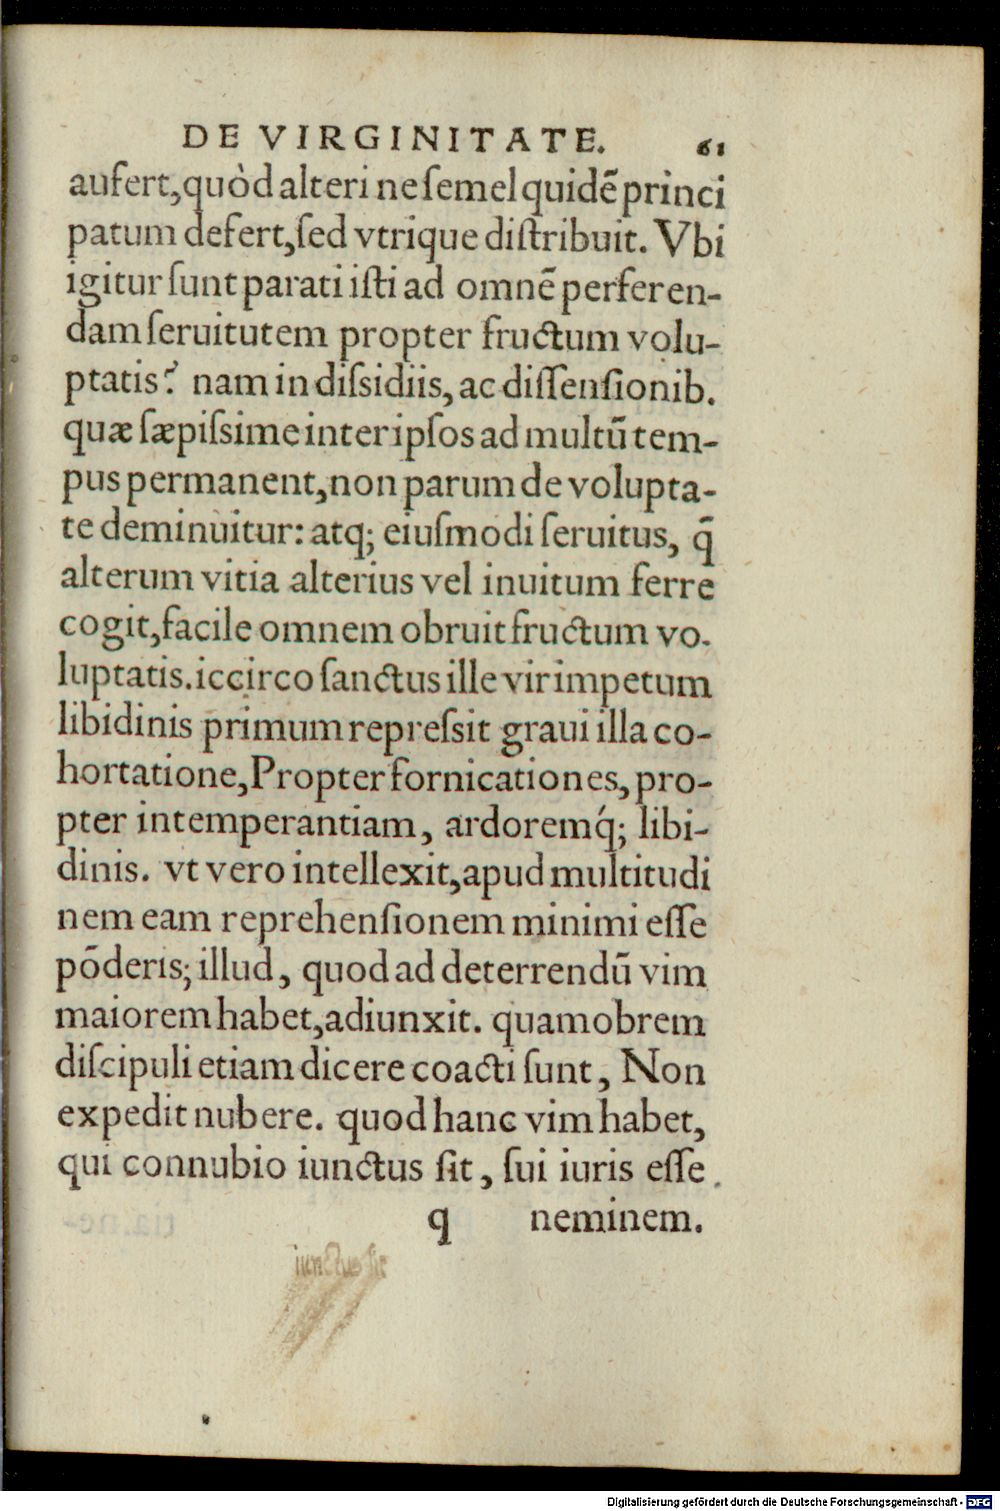 DE VIRGINITATE. 61
aufert,quòd alteri ne ſemel quidẽ princi
patum defert,ſed vtrique diſtribuit. Vbi
igitur ſunt parati iſti ad omnẽ perferen-
dam ſeruitutem propter fructum volu-
ptatis? nam in diſsidiis, ac diſſenſionib.
quæ ſæpiſsime inter ipſos ad multũ tem-
pus permanent,non parum de volupta-
te deminuitur: atq; eiuſmodi ſeruitus, q̃
alterum vitia alterius vel inuitum ferre
cogit,facile omnem obruit fructum vo-
luptatis.iccirco ſanctus ille vir impetum
libidinis primum repreſsit graui illa co-
hortatione,Propter fornicationes,pro-
pter intemperantiam, ardoremq́; libi-
dinis. vt vero intellexit,apud multitudi
nem eam reprehenſionem minimi eſſe
põderis; illud, quod ad deterrendũ vim
maiorem habet,adiunxit. quamobrem
diſcipuli etiam dicere coacti ſunt, Non
expedit nubere. quod hanc vim habet,
qui connubio iunctus ſit, ſui iuris eſſe
q neminem.
Digitalisierung gefördert durch die Deutsche Forschungsgemeinschaft - DFG